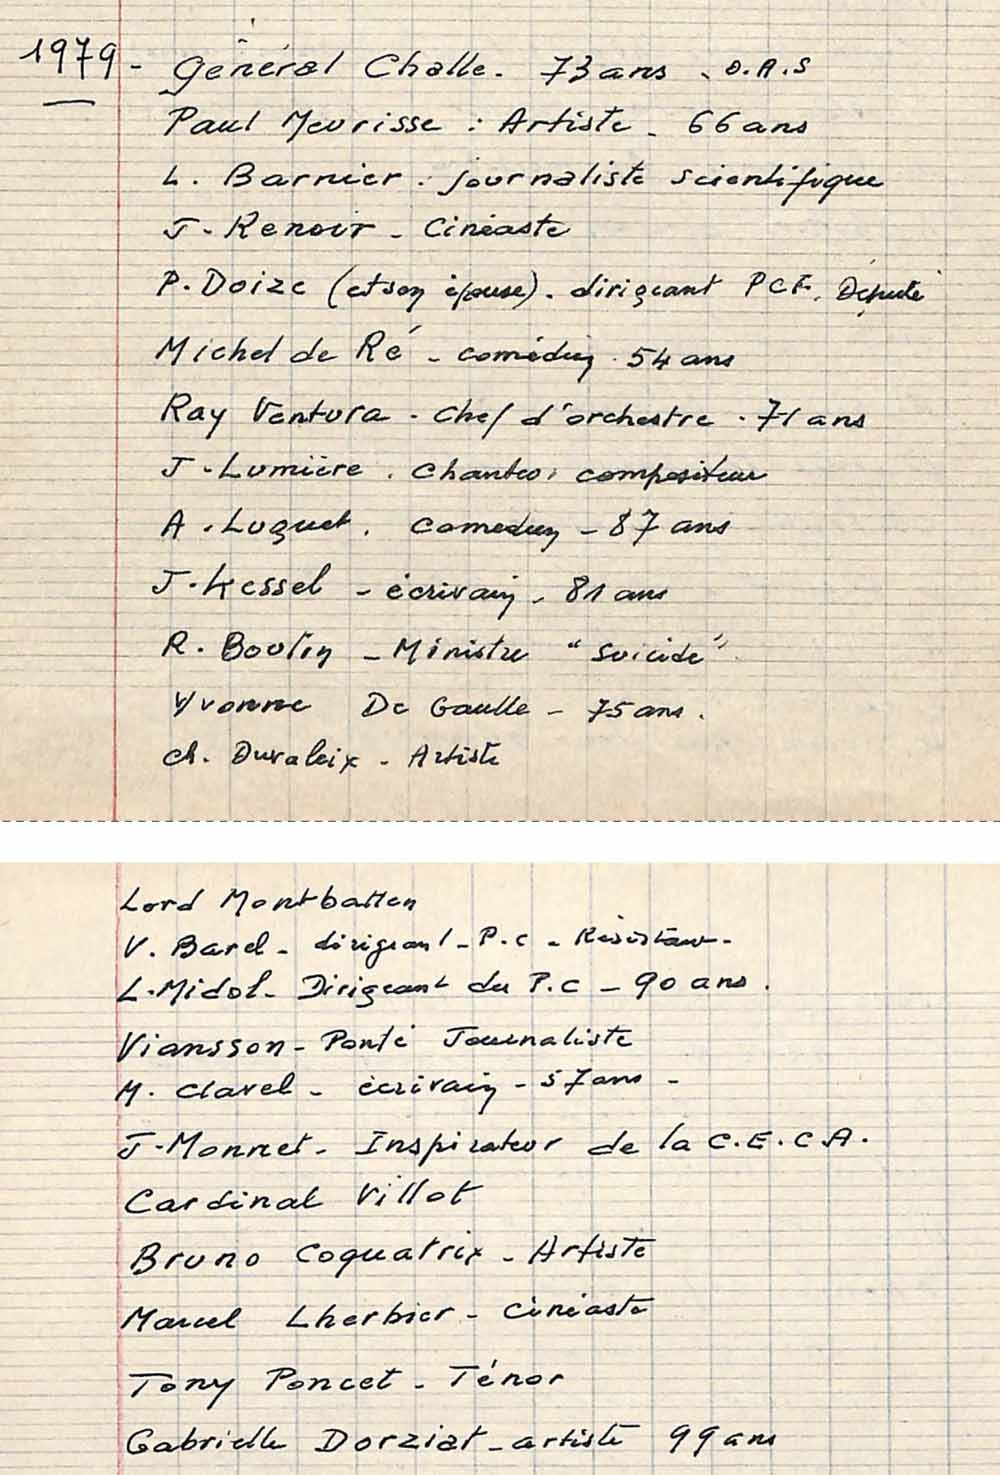 1979 - Général Challe. 73 ans - O.A.S
Paul Meurisse : Artiste - 66 ans
L. Barnier. journaliste scientifique
J. Renoir - Cinéaste
P. Doize (et son épouse). dirigeant PCF. Député
Michel de Ré - comédien. 54 ans
Ray Ventura - chef d'orchestre. 71 ans
J. Lumière. chanteur compositeur
A. Luguet. comedien - 87 ans
J. Kessel - écrivain - 81 ans
R. Boulin - Ministre "suicidé"
Yvonne De Gaulle - 75 ans.
Ch. Duvaleix - Artiste
Lord Montbatten
V. Barel - dirigeant - P.C - Résistance -
L. Midol - Dirigeant du P.C - 90 ans.
Viansson-Ponté Journaliste
M. Clavel - écrivain - 57 ans -
J. Monnet - Inspirateur de la C.E.C.A.
Cardinal Villot
Bruno Coquatrix - Artiste
Marcel Lherbier - Cinéaste
Tony Poncet - Ténor
Gabrielle Dorziat - artiste 99 ans